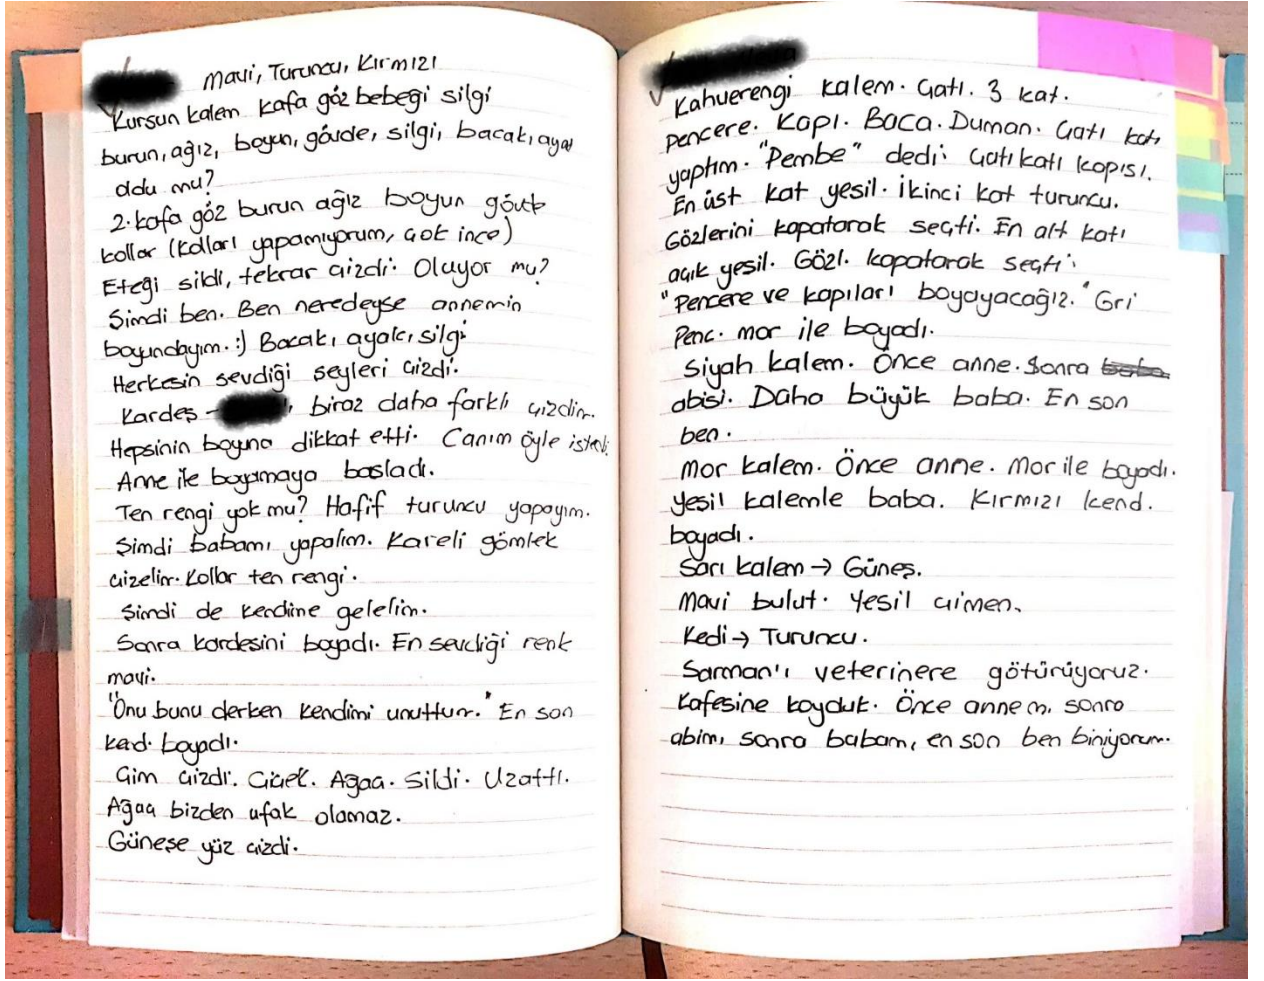 Mavi, Turuncu, Kırmızı
Kurşun kalem kafa göz bebeği silgi
burun, ağız, boyun, gövde, silgi, bacak, ayak
oldu mu?
2. kafa göz burun ağız boyun gövde
kollar (kolları yapamıyorum, çok ince)
Eteği sildi, tekrar çizdi. Oluyor mu?
Şimdi ben. Ben neredeyse annemin
boyundayım. :) Bacak, ayak, silgi
Herkesin sevdiği şeyleri çizdi.
Kardeş - , biraz daha farklı çizdim.
Hepsinin boyuna dikkat etti. Canım öyle istedi.
Anne ile boyamaya başladı.
Ten rengi yok mu? Hafif turuncu yapayım.
Şimdi babamı yapalım. Kareli gömlek
çizelim. Kollar ten rengi.
Şimdi de kendime gelelim.
Sonra kardeşini boyadı. En sevdiği renk
mavi.
"Onu bunu derken kendimi unuttum." En son
kend. boyadı.
Çim çizdi. Çiçek. Ağaç. Sildi. Uzattı.
Ağaç bizden ufak olamaz.
Güneşe yüz çizdi.
Kahverengi kalem. Çatı. 3 kat.
Pencere. Kapı. Baca. Duman. Çatı katı
yaptım. "Pembe" dedi. Çatı katı kapısı.
En üst kat yeşil. İkinci kat turuncu.
Gözlerini kapatarak seçti. En alt katı
açık yeşil. Gözl. kapatarak seçti.
"Pencere ve kapıları boyayacağız." Gri
Penc. mor ile boyadı.
Siyah kalem. Önce anne. Sonra baba
abisi. Daha büyük baba. En son
ben.
Mor kalem. Önce anne. Mor ile boyadı.
Yeşil kalemle baba. Kırmızı kend.
boyadı.
Sarı kalem → Güneş.
Mavi bulut. Yeşil çimen.
Kedi → Turuncu.
Sarman'ı veterinere götürüyoruz.
Kafesine koyduk. Önce annem, sonra
abim, sonra babam, en son ben biniyorum.